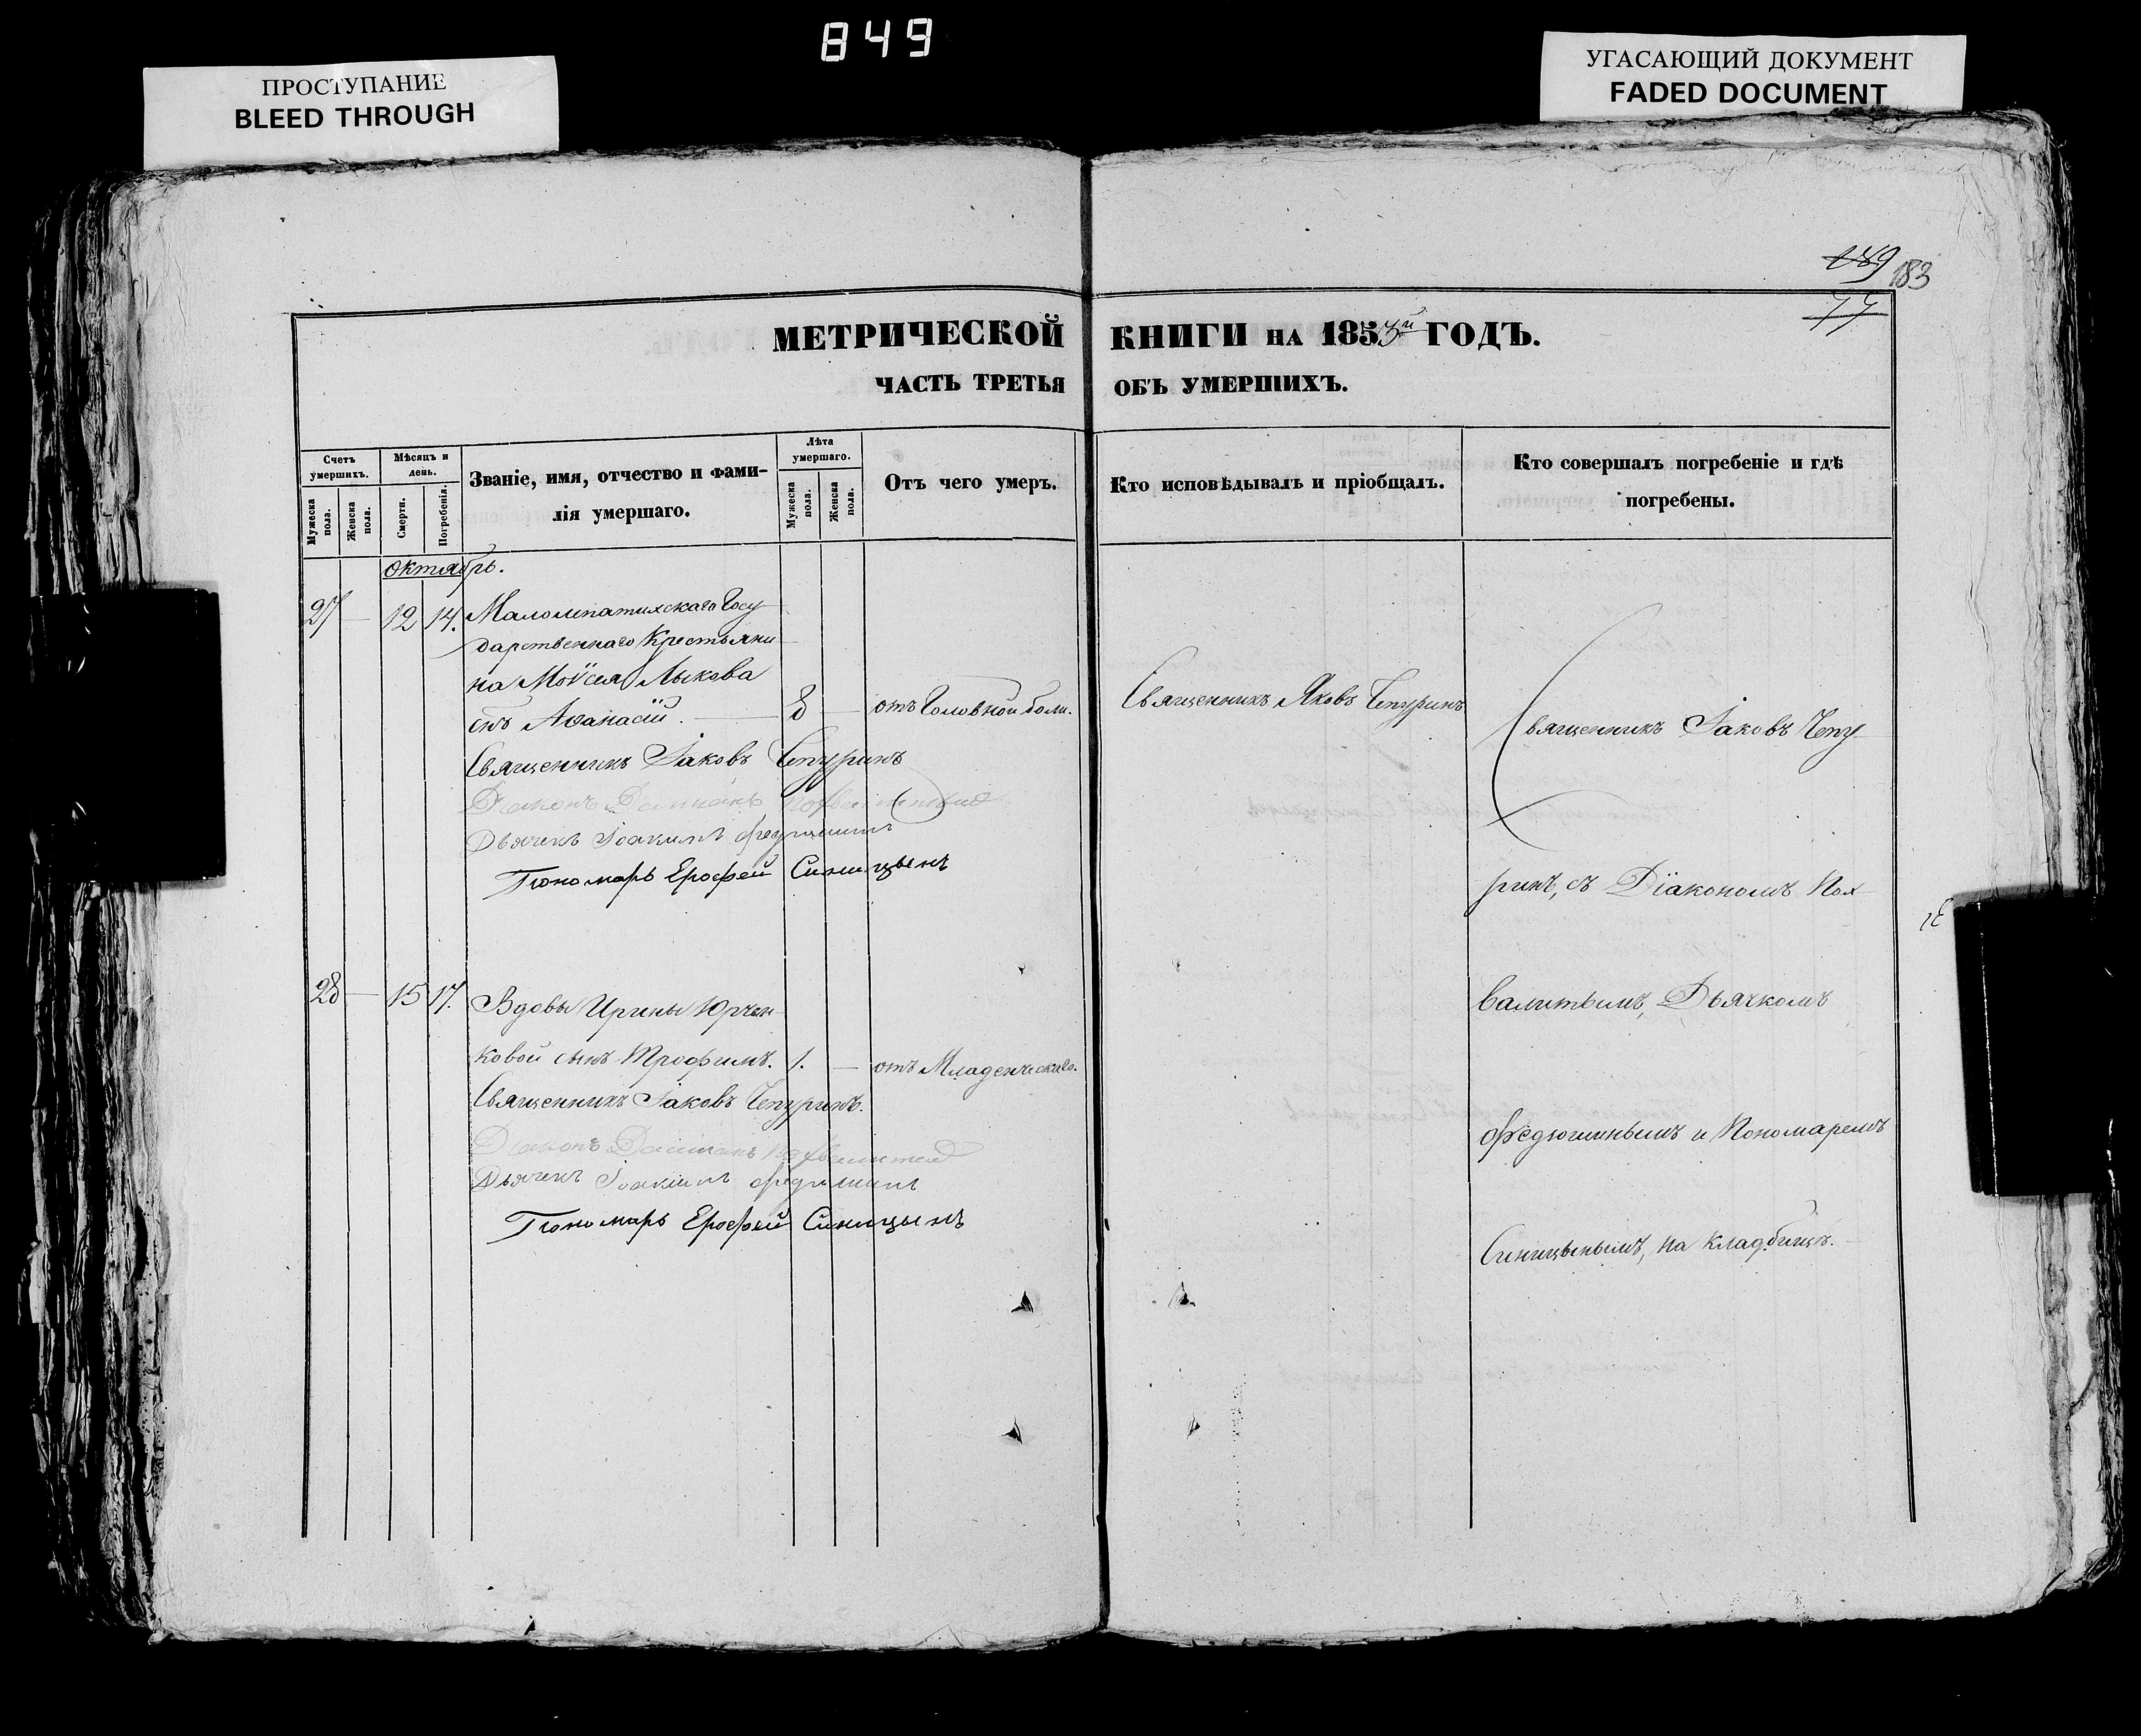 849
ПРОСТУПАНИЕ
BLEED THROUGH
УГАСАЮЩИЙ ДОКУМЕНТ
FADED DOCUMENT
189 183
77
МЕТРИЧЕСКОЙ КНИГИ НА 1853й ГОДЪ.
ЧАСТЬ ТРЕТЬЯ ОБЪ УМЕРШИХЪ.
Счетъ умершихъ.
Мужеска пола.
Женска пола.
Мѣсяцъ и день.
Смерти.
Погребенія.
Званіе, имя, отчество и фами-
лія умершаго.
Лѣта умершаго.
Мужеска пола.
Женска пола.
Отъ чего умеръ.
Кто исповѣдывалъ и пріобщалъ.
Кто совершалъ погребеніе и гдѣ
погребены.
Октябрь.
27 — 12 14. Малолепатихскаго Госу
дарственнаго Крестьяни
на Моѵсея Лыкова
снъ Аѳанасій. — 8 — отъ Головной боли.
Священникъ Іаковъ Чепуринъ
Діаконъ Даміанъ Похвалитый
Дьячекъ Іоакимъ Федюшинъ
Пономарь Ерофей Синицынъ
Священникъ Яковъ Чепуринъ
28 — 15 17. Вдовы Ирины Юрчен
ковой сынъ Трофимъ. 1. — отъ Младенческаго.
Священникъ Іаковъ Чепуринъ.
Діаконъ Даміанъ Похвалитый
Дьячекъ Іоакимъ Федюшинъ
Пономарь Ерофей Синицынъ
Священникъ Іаковъ Чепу
ринъ, съ Діакономъ Пох
валитымъ, Дьячкомъ
Федюшинымъ и Пономаремъ
Синицынымъ, на кладбищѣ.